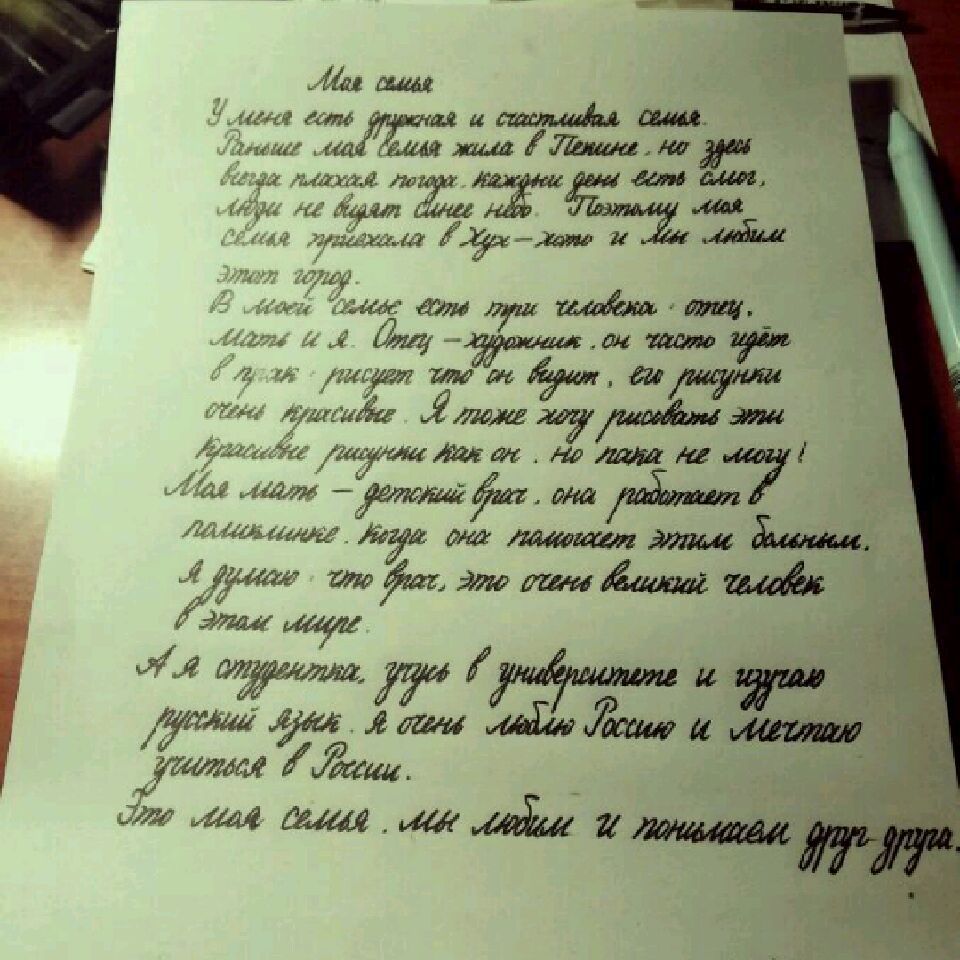 Моя семья
У меня есть дружная и счастливая семья.
Раньше моя семья жила в Пекине, но здесь
всегда плахая погода, каждыи день есть смог,
люди не видят синее небо. Поэтому моя
семья приехала в Хух-хото и мы любим
этот город.
В моей семье есть три человека: отец,
мать и я. Отец - художник, он часто идёт
в прак, рисует что он видит, его рисунки
очень красивые. Я тоже хочу рисовать эти
красивые рисунки как он, но пака не могу!
Моя мать - детский врач, она работает в
поликлинке, когда она помогает этим больным,
я думаю, что врач, это очень великий человек
в этом мире.
А я студентка, учусь в университете и изучаю
русский язык. Я очень люблю Россию и мечтаю
учиться в России.
Это моя семья, мы любим и понимаем друг-друга.